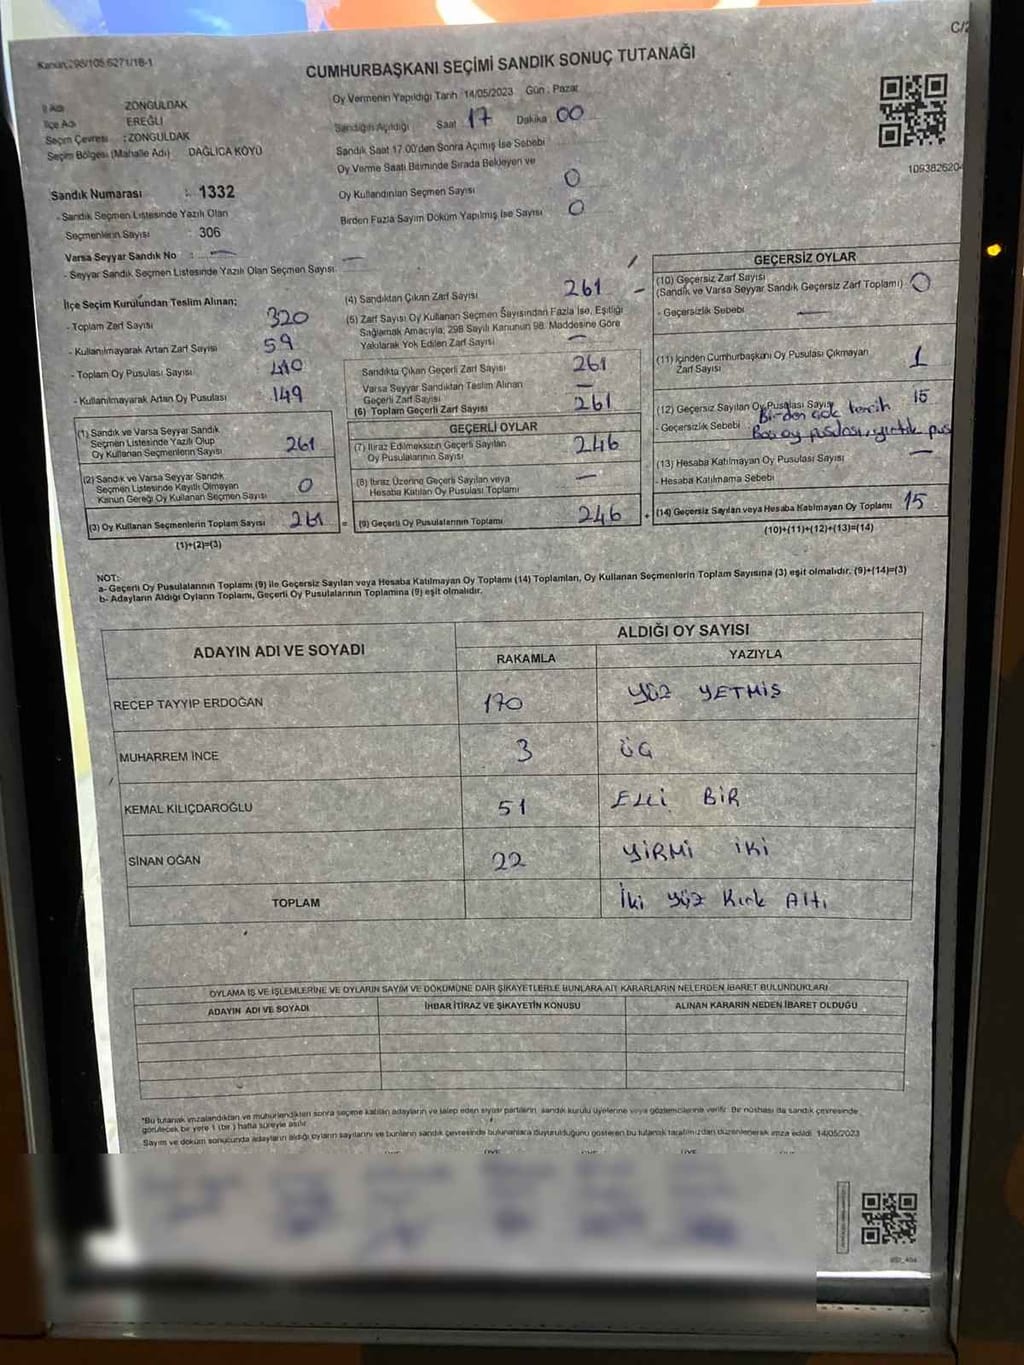 C/2
Kanun;298/105,6271/18-1
CUMHURBAŞKANI SEÇİMİ SANDIK SONUÇ TUTANAĞI
İl Adı ZONGULDAK
İlçe Adı EREĞLİ
Seçim Çevresi : ZONGULDAK
Seçim Bölgesi (Mahalle Adı) DAĞLICA KÖYÜ
Oy Vermenin Yapıldığı Tarih 14/05/2023 Gün : Pazar
Sandığın Açıldığı Saat 17 Dakika 00
Sandık Saat 17.00'den Sonra Açımış İse Sebebi
Oy Verme Saati Bitiminde Sırada Bekleyen ve
Oy Kullandırılan Seçmen Sayısı 0
Birden Fazla Sayım Döküm Yapılmış İse Sayısı 0
109382620
Sandık Numarası : 1332
- Sandık Seçmen Listesinde Yazılı Olan
Seçmenlerin Sayısı : 306
Varsa Seyyar Sandık No : —
- Seyyar Sandık Seçmen Listesinde Yazılı Olan Seçmen Sayısı: —
İlçe Seçim Kurulundan Teslim Alınan;
- Toplam Zarf Sayısı 320
- Kullanılmayarak Artan Zarf Sayısı 59
- Toplam Oy Pusulası Sayısı 410
- Kullanılmayarak Artan Oy Pusulası 149
(1) Sandık ve Varsa Seyyar Sandık
Seçmen Listesinde Yazılı Olup
Oy Kullanan Seçmenlerin Sayısı 261
(2) Sandık ve Varsa Seyyar Sandık
Seçmen Listesinde Kayıtlı Olmayan
Kanun Gereği Oy Kullanan Seçmen Sayısı 0
(3) Oy Kullanan Seçmenlerin Toplam Sayısı 261
(1)+(2)=(3)
(4) Sandıktan Çıkan Zarf Sayısı 261
(5) Zarf Sayısı Oy Kullanan Seçmen Sayısından Fazla İse, Eşitliği
Sağlamak Amacıyla; 298 Sayılı Kanunun 98. Maddesine Göre
Yakılarak Yok Edilen Zarf Sayısı —
Sandıkta Çıkan Geçerli Zarf Sayısı 261
Varsa Seyyar Sandıktan Teslim Alınan
Geçerli Zarf Sayısı —
(6) Toplam Geçerli Zarf Sayısı 261
GEÇERLİ OYLAR
(7) İtiraz Edilmeksizin Geçerli Sayılan
Oy Pusulalarının Sayısı 246
(8) İtiraz Üzerine Geçerli Sayılan veya
Hesaba Katılan Oy Pusulası Toplamı —
= (9) Geçerli Oy Pusulalarının Toplamı 246
GEÇERSİZ OYLAR
(10) Geçersiz Zarf Sayısı
(Sandık ve Varsa Seyyar Sandık Geçersiz Zarf Toplamı) 0
- Geçersizlik Sebebi —
(11) İçinden Cumhurbaşkanı Oy Pusulası Çıkmayan
Zarf Sayısı 1
(12) Geçersiz Sayılan Oy Pusulası Sayısı 15
- Geçersizlik Sebebi Birden çok tercih
Boş oy pusulası, yırtık pus
(13) Hesaba Katılmayan Oy Pusulası Sayısı —
- Hesaba Katılmama Sebebi
+ (14) Geçersiz Sayılan veya Hesaba Katılmayan Oy Toplamı 15
(10)+(11)+(12)+(13)=(14)
NOT:
a- Geçerli Oy Pusulalarının Toplamı (9) ile Geçersiz Sayılan veya Hesaba Katılmayan Oy Toplamı (14) Toplamları, Oy Kullanan Seçmenlerin Toplam Sayısına (3) eşit olmalıdır. (9)+(14)=(3)
b- Adayların Aldığı Oyların Toplamı, Geçerli Oy Pusulalarının Toplamına (9) eşit olmalıdır.
ADAYIN ADI VE SOYADI ALDIĞI OY SAYISI
RAKAMLA YAZIYLA
RECEP TAYYIP ERDOĞAN 170 YÜZ YETMİŞ
MUHARREM İNCE 3 ÜÇ
KEMAL KILIÇDAROĞLU 51 ELLİ BİR
SİNAN OĞAN 22 YİRMİ İKİ
TOPLAM İki yüz Kırk Altı
OYLAMA İŞ VE İŞLEMLERİNE VE OYLARIN SAYIM VE DÖKÜMÜNE DAİR ŞİKAYETLERLE BUNLARA AİT KARARLARIN NELERDEN İBARET BULUNDUKLARI
ADAYIN ADI VE SOYADI İHBAR İTİRAZ VE ŞİKAYETİN KONUSU ALINAN KARARIN NEDEN İBARET OLDUĞU
*Bu tutanak imzalandıktan ve mühürlendikten sonra seçime katılan adayların ve talep eden siyasi partilerin sandık kurulu üyelerine veya gözlemcilerine verilir. Bir nüshası da sandık çevresinde
görülecek bir yere 1 (bir) hafta süreyle asılır.
Sayım ve döküm sonucunda adayların aldığı oyların sayılarını ve bunların sandık çevresinde bulunanlara duyurulduğunu gösteren bu tutanak tarafımızdan düzenlenerek imza edildi. 14/05/2023